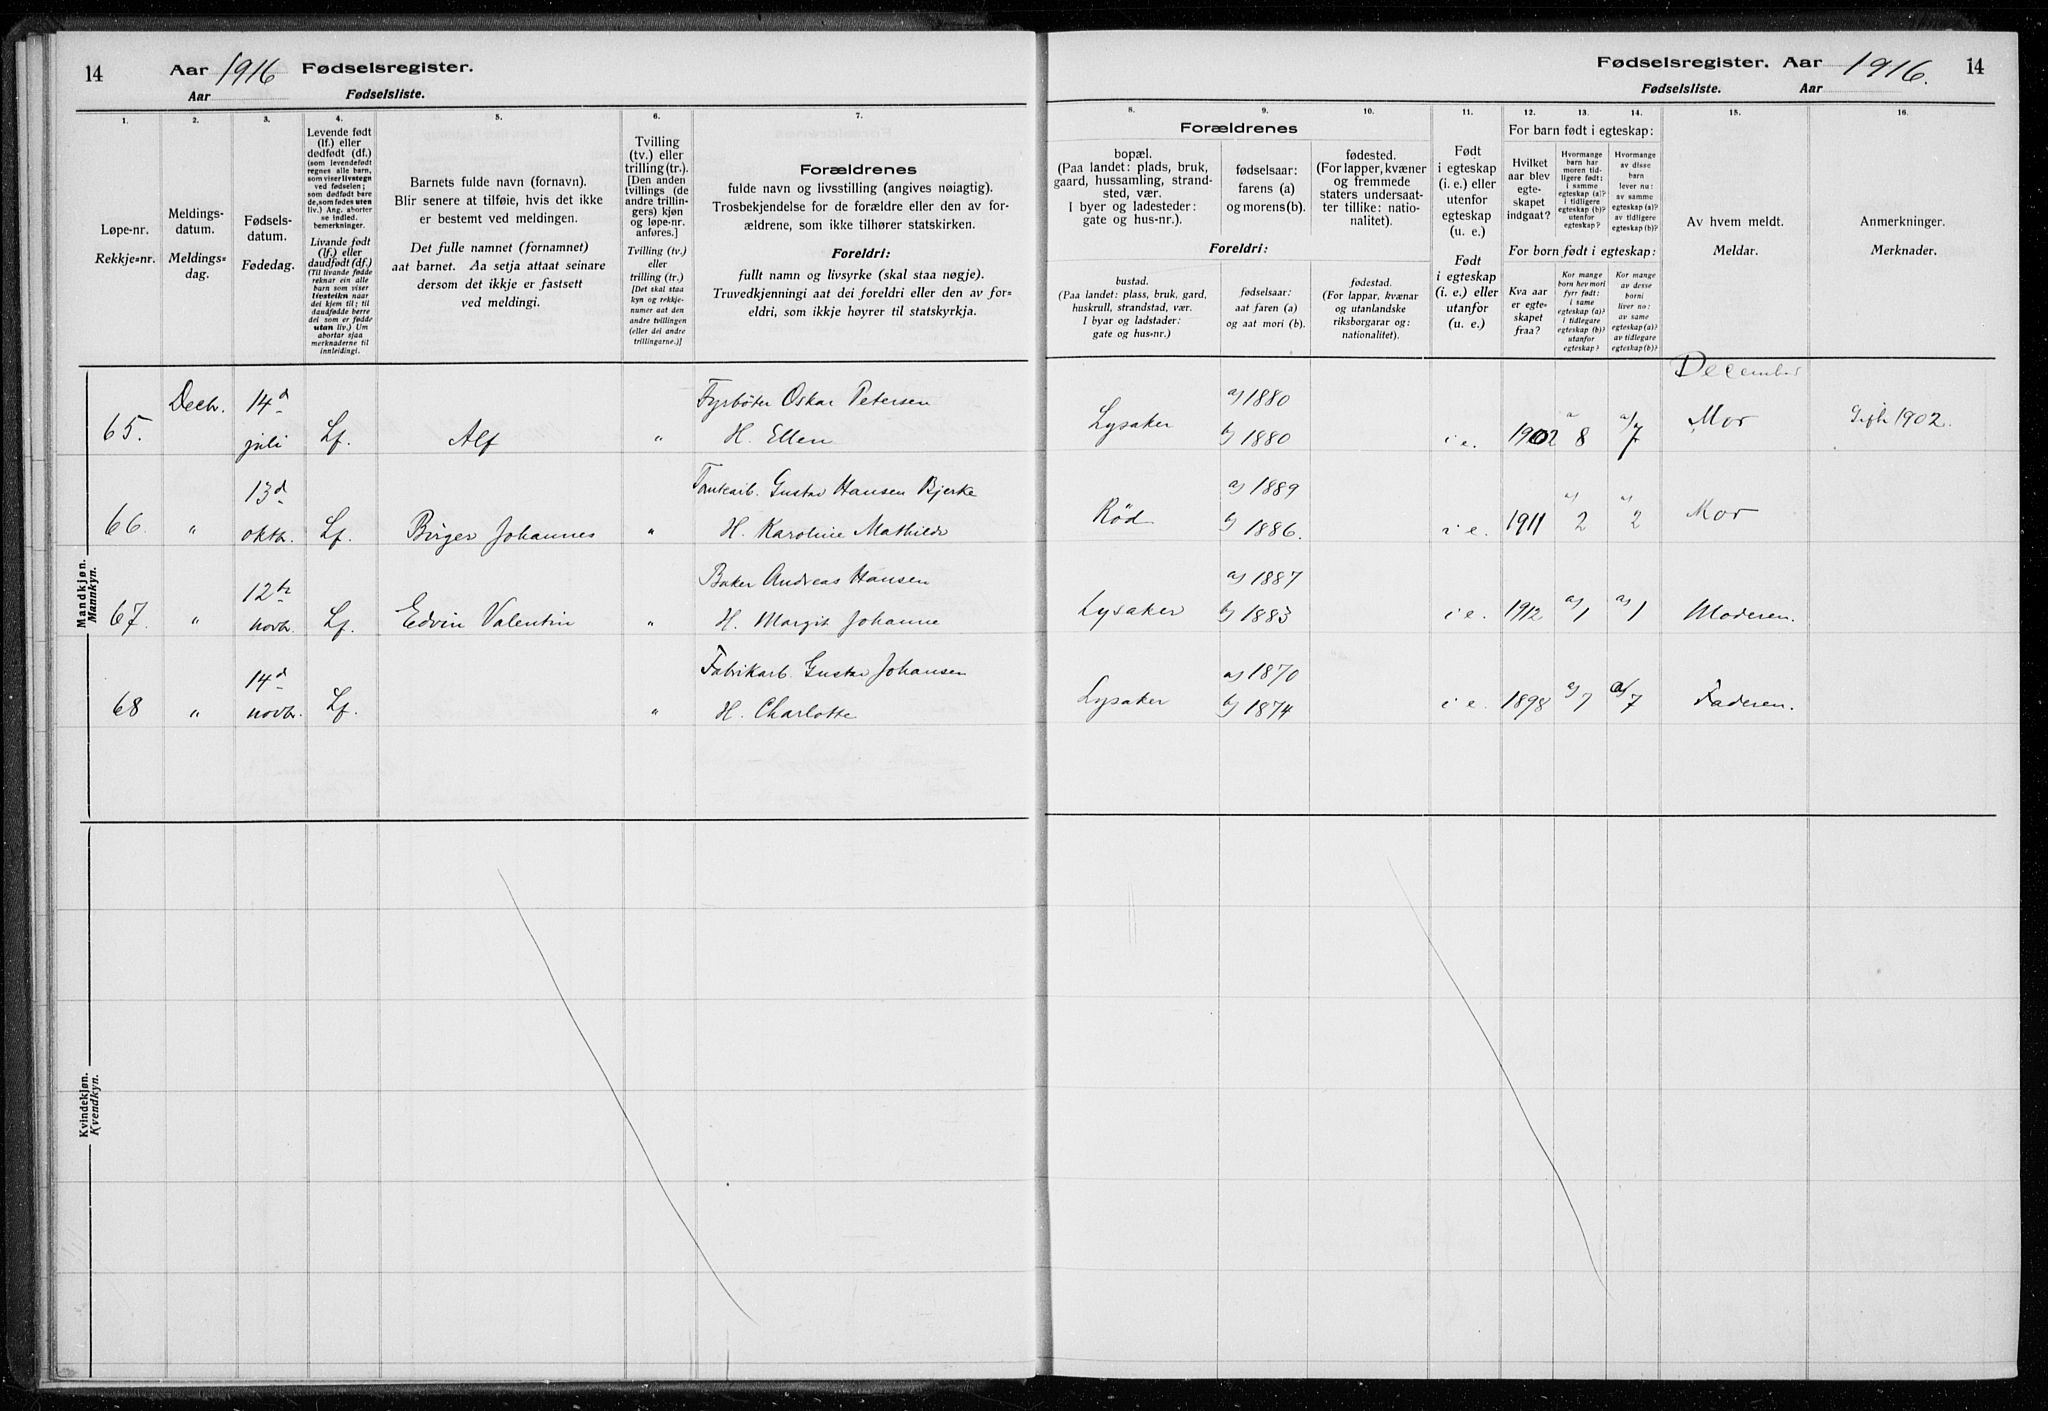 14 Aar 1916 Fødselsregister.
Aar Fødselsliste.
1.
2.
3.
4.
5.
6.
7.
Løpe-nr.
Rekkje-nr.
Meldings-
datum.
Meldings-
dag.
Fødsels-
datum.
Fødedag.
Levende født
(lf.) eller
dødfødt (df.)
(som levendefødt
regnes alle barn,
som viser livstegn
ved fødselen;
som dødfødt bare
de, som fødes uten
liv.) Ang. aborter
se indled.
bemerkninger.
Livande født
(lf.) eller
daudfødt (df.)
(Til livande fødde
reknar ein alle
barn som viser
livsteikn naar
dei kjem til; til
daudfødde berre
dei som er fødde
utan liv.) Um
abortar sjaa
merknaderne til
innleidingi.
Barnets fulde navn (fornavn).
Blir senere at tilføie, hvis det ikke
er bestemt ved meldingen.
Det fulle namnet (fornamnet)
aat barnet. Aa setja attaat seinare
dersom det ikkje er fastsett
ved meldingi.
Tvilling
(tv.) eller
trilling (tr.).
[Den anden
tvillings (de
andre trillin-
gers) kjøn
og løpe-nr.
anføres.]
Tvilling (tv.)
eller
trilling (tr.)
[Det skal staa
kyn og rekkje-
numer aat den
andre tvillingen
(eller dei andre
trillingarne.)]
Forældrenes
fulde navn og livsstilling (angives nøiagtig).
Trosbekjendelse for de forældre eller den av for-
ældrene, som ikke tilhører statskirken.
Foreldri:
fullt namn og livsyrke (skal staa nøgje).
Truvedkjenningi aat dei foreldri eller den av for-
eldri, som ikkje høyrer til statskyrkja.
Mandkjøn.
Mannkyn.
65. Decbr. 14d juli Lf. Alf „ Fyrbøter Oskar Petersen
H. Ellen
66. „ 13d oktbr. Lf. Birger Johannes „ Tomtearb. Gustav Hansen Bjerke
H. Karoline Mathilde
67. „ 12te novbr. Lf. Edvin Valentin „ Baker Andreas Hansen
H. Margit Johanne
68 „ 14d novbr. Lf. „ Fabrikarb. Gustav Johansen
H. Charlotte
Kvindekjøn.
Kvendkyn.
Fødselsregister. Aar 1916. 14
Fødselsliste. Aar
8.
9.
10.
11.
12.
13.
14.
15.
16.
Forældrenes
bopæl.
(Paa landet: plads, bruk,
gaard, hussamling, strand-
sted, vær.
I byer og ladesteder:
gate og hus-nr.).
fødselsaar:
farens (a)
og morens (b).
fødested.
(For lapper, kvæner
og fremmede
staters undersaat-
ter tillike: natio-
nalitet).
Foreldri:
bustad.
(Paa landet: plass, bruk, gard,
huskrull, strandstad, vær.
I byar og ladstader:
gate og hus-nr.)
fødselsaar:
aat faren (a)
og aat mori (b).
fødestad.
(For lappar, kvænar
og utanlandske
riksborgarar og:
nationalitet).
Født
i egteskap
(i. e.) eller
utenfor
egteskap
(u. e.)
Født
i egteskap
(i. e.) eller
utanfor
(u. e.)
For barn født i egteskap:
Hvilket
aar blev
egte-
skapet
indgaat?
Hvormange
barn har
moren tid-
ligere født:
i samme
egteskap (a)?
i tidligere
egteskap (b)?
utenfor
egteskap?
Hvormange
av disse
barn
lever nu:
av samme
egteskap (a)?
av tidligere
egteskap (b)?
For born født i egteskap:
Kva aar
er egte-
skapet
fraa?
Kor mange
born hev mori
fyrr født:
i same
egteskap (a)?
i tidlegare
egteskap (b)?
utanfor
egteskap?
Kor mange
av desse
borni
liver no:
av same
egteskap (a)?
av tidlegare
egteskap (b)?
Av hvem meldt.
Meldar.
Anmerkninger.
Merknader.
December
Lysaker a) 1880 b) 1880 i e. 1902 a 8 a/7 Mor Gift 1902.
Rød a) 1889 b) 1886. i e. 1911 a) 2 a) 2 Mor
Lysaker a) 1887 b) 1883 i e. 1912 a) 1 a) 1 Moderen.
Lysaker a) 1870 b) 1874 i e. 1898 a) 7 a) 7 Faderen.